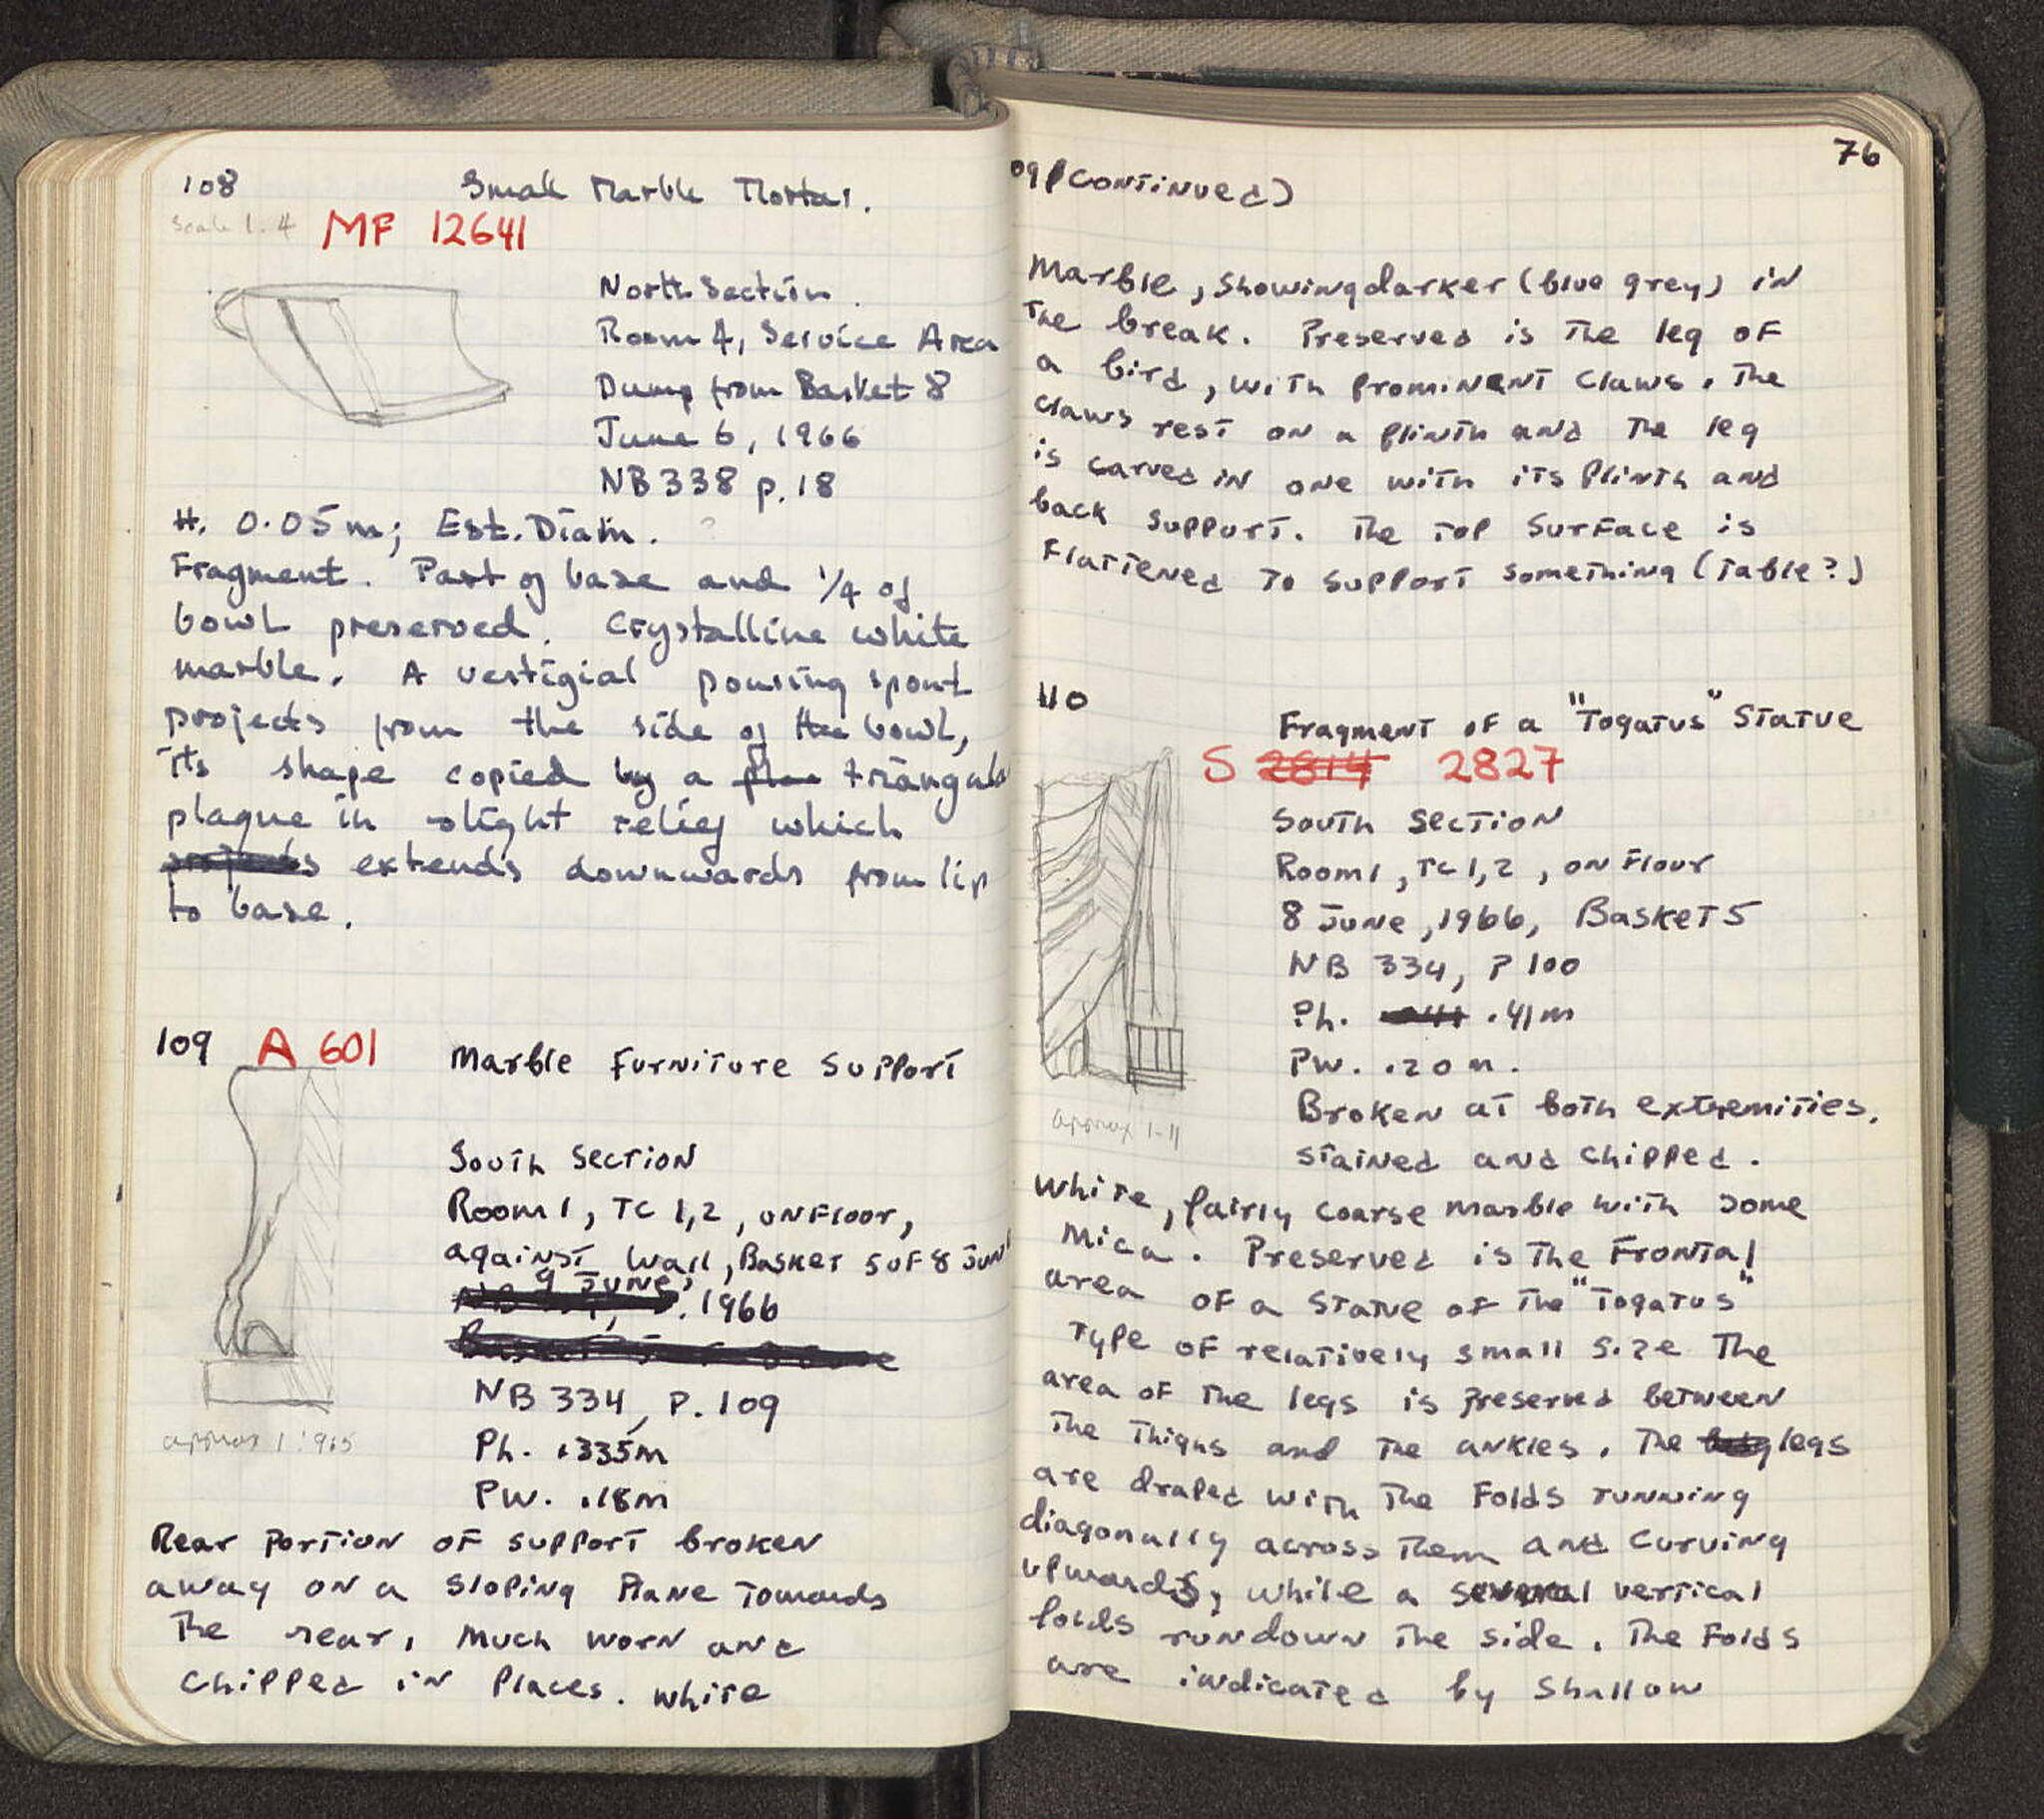 108 Small Marble Mortar.
Scale 1:4 MF 12641
North Section.
Room 4, Service Area
Dump from Basket 8
June 6, 1966
NB 338 p. 18
H. 0.05m; Est. Diam. ?
Fragment. Part of base and 1/4 of
bowl preserved. Crystalline white
marble. A vestigial pouring spout
projects from the side of the bowl,
its shape copied by a triangula
plaque in slight relief which
extends downwards from lip
to base.
109 A 601 Marble Furniture Support
South Section
Room 1, TC 1,2, on Floor,
against wall, Basket 5 of 8 June
9 June, 1966
NB 334, P. 109
Ph. .335m
PW. .18m
approx 1:9.5
Rear portion of support broken
away on a sloping plane towards
the rear, much worn and
chipped in places. white
76
09 (continued)
Marble, showing darker (blue grey) in
the break. Preserved is the leg of
a bird, with prominent claws. The
claws rest on a plinth and the leg
is carved in one with its plinth and
back support. The top surface is
flattened to support something (table?)
110
Fragment of a "Togatus" Statue
S 2814 2827
South Section
Room 1, TC 1,2, on Floor
8 June, 1966, Basket 5
NB 334, P 100
Ph. .41m
PW. .20m.
Broken at both extremities.
approx 1-11
stained and chipped.
White, fairly coarse marble with some
Mica. Preserved is the Frontal
area of a statue of the "Togatus"
type of relatively small size The
area of the legs is preserved between
the thighs and the ankles. The legs
are draped with the folds running
diagonally across them and curving
upwards, while a several vertical
folds run down the side. The folds
are indicated by shallow